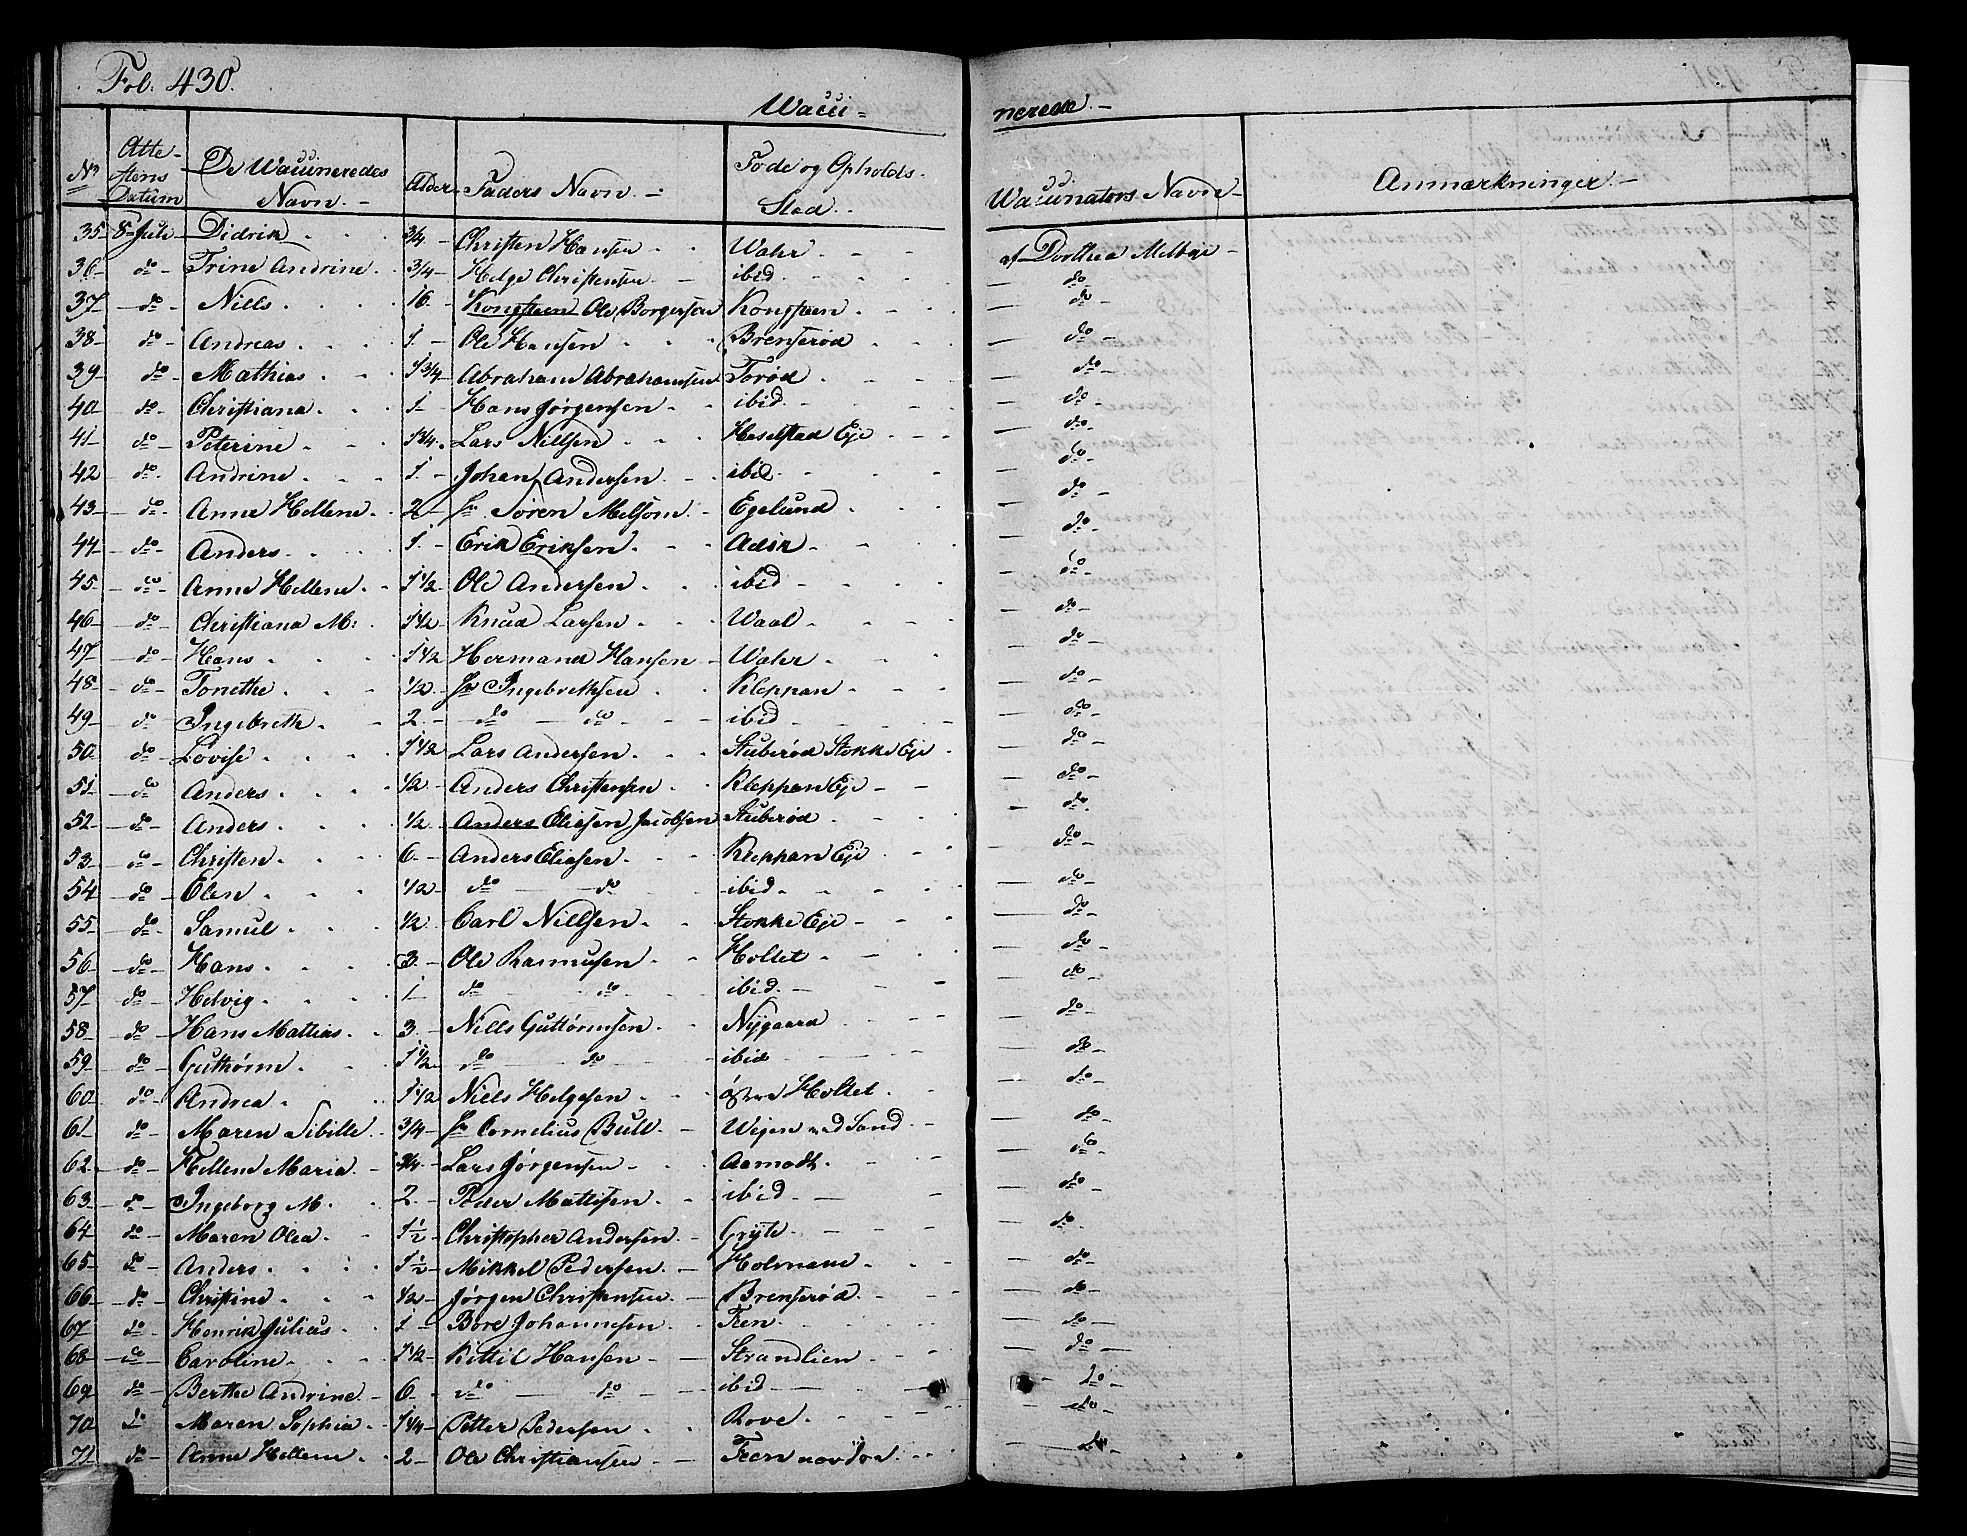 Fol. 430.
Wacci=
nerede. -
No Attestens Datum De Waccineredes Navn. - Alder Faders Navn. - Føde og Opholds Stad. Waccinators Navn - Anmærkninger. -
35 8 Juli Didrik 3/4 Christen Hansen Wahr af Dorthea Melbye
36 do Trine Andrine 3/4 Helge Christensen ibid do
37 do Niels 16 Kongsteen Ole Borgersen Kongsteen do
38 do Andreas 1 Ole Hansen Brenserød do
39 do Mathias 1 3/4 Abraham Abrahamsen Torød do
40 do Christiana 1 Hans Jørgensen ibid do
41 do Peterine 1 3/4 Lars Nillsen Haselstad Eje do
42 do Andrine 1 Johan Andersen ibid do
43 do Anne Hellene 2 Hr Søren Melsom Egelund do
44 do Anders 1 Erik Eriksen Adsik do
45 do Anne Hellene 1 1/2 Ole Andersen ibid do
46 do Christiana M: 1 1/2 Knud Larsen Waal do
47 do Hans 1 1/2 Hermand Hansen Wahr do
48 do Tonette 1/2 Hr Ingebrethsen Kleppan do
49 do Ingebreth 2 do do ibid do
50 do Lovise 1 1/2 Lars Andersen Stuberød Stokke Eje do
51 do Anders 1/2 Anders Christensen Kleppan Eje do
52 do Anders 1/2 Anders Eliesen Jacobsen Stuberød do
53 do Christen 6 Anders Eliesen Kleppan Eje do
54 do Elen 1/2 do do ibid do
55 do Samul 1/2 Carl Nillsen Stokke Eje do
56 do Hans 3 Ole Rasmusen Holtet do
57 do Helvig 1 do do ibid do
58 do Hans Mathias 3 Niells Guttormsen Nygaard do
59 do Guthorm 1 1/2 do do ibid do
60 do Andrea 1 1/2 Niels Helgesen østre Holtet do
61 do Maren Sibille 3/4 Hr Cornelius Bull Wejen ved Sand do
62 do Hellene Maria 3/4 Lars Jørgensen Aamodt do
63 do Ingeborg M. 2 Peder Mattisen ibid do
64 do Maren Olea 1 1/2 Christopher Andersen Gryte do
65 do Anders 1 1/2 Mikkel Pedersen Holmane do
66 do Christine 1/2 Jørgen Christensen Brenserød do
67 do Henrik Julius 1 Bore Johannesen Teen do
68 do Caroline 1 1/2 Kittil Hansen Strandlien do
69 do Berthe Andrine 6 do do ibid do
70 do Maren Sophia 1 1/4 Petter Pedersen Rove do
71 do Anne Hellene 2 Ole Christiansen Teen do